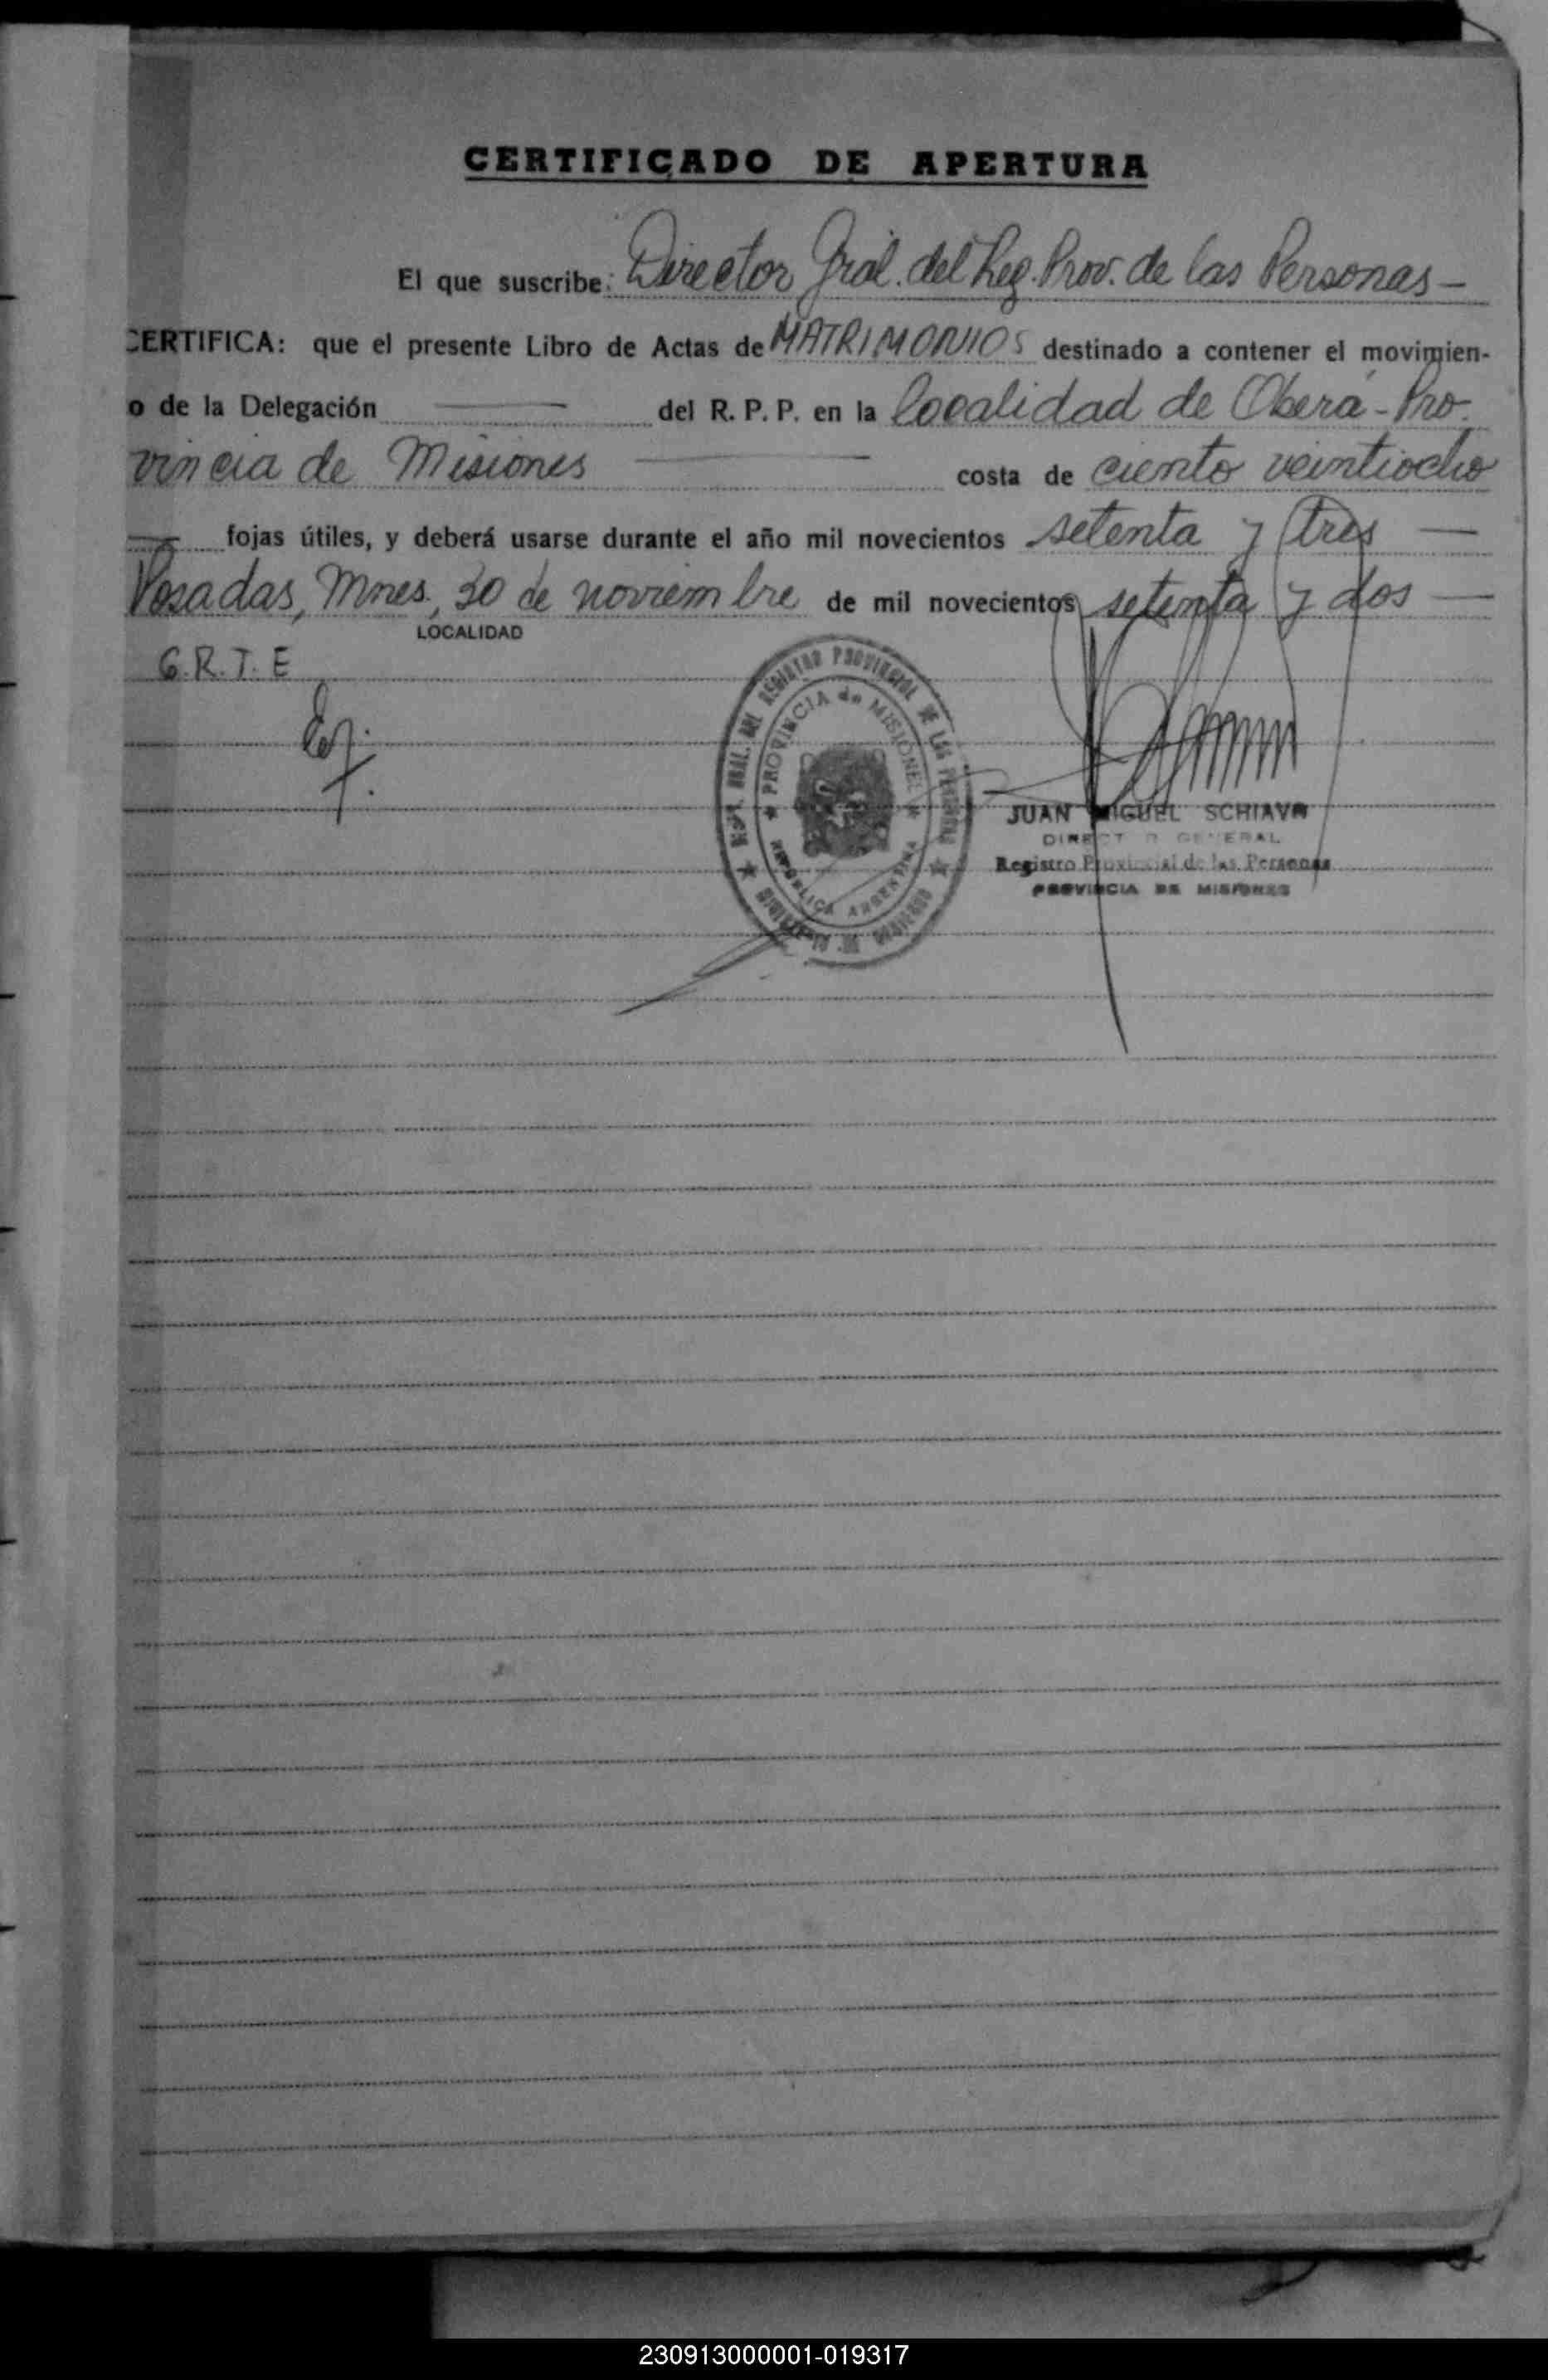 CERTIFICADO DE APERTURA
El que suscribe: Director Gral. del Reg. Prov. de las Personas -
CERTIFICA: que el presente Libro de Actas de MATRIMONIOS destinado a contener el movimien-
o de la Delegación del R. P. P. en la localidad de Oberá - Pro
vincia de Misiones costa de ciento veintiocho
fojas útiles, y deberá usarse durante el año mil novecientos setenta y tres —
Posadas, Mnes, 30 de noviembre de mil novecientos setenta y dos —
LOCALIDAD
G.R.T.E
DEL REGISTRO PROVINCIAL DE LAS PERSONAS
PROVINCIA de MISIONES
REPUBLICA ARGENTINA
JUAN MIGUEL SCHIAVO
DIRECTOR GENERAL
Registro Provincial de las Personas
PROVINCIA DE MISIONES
230913000001-019317